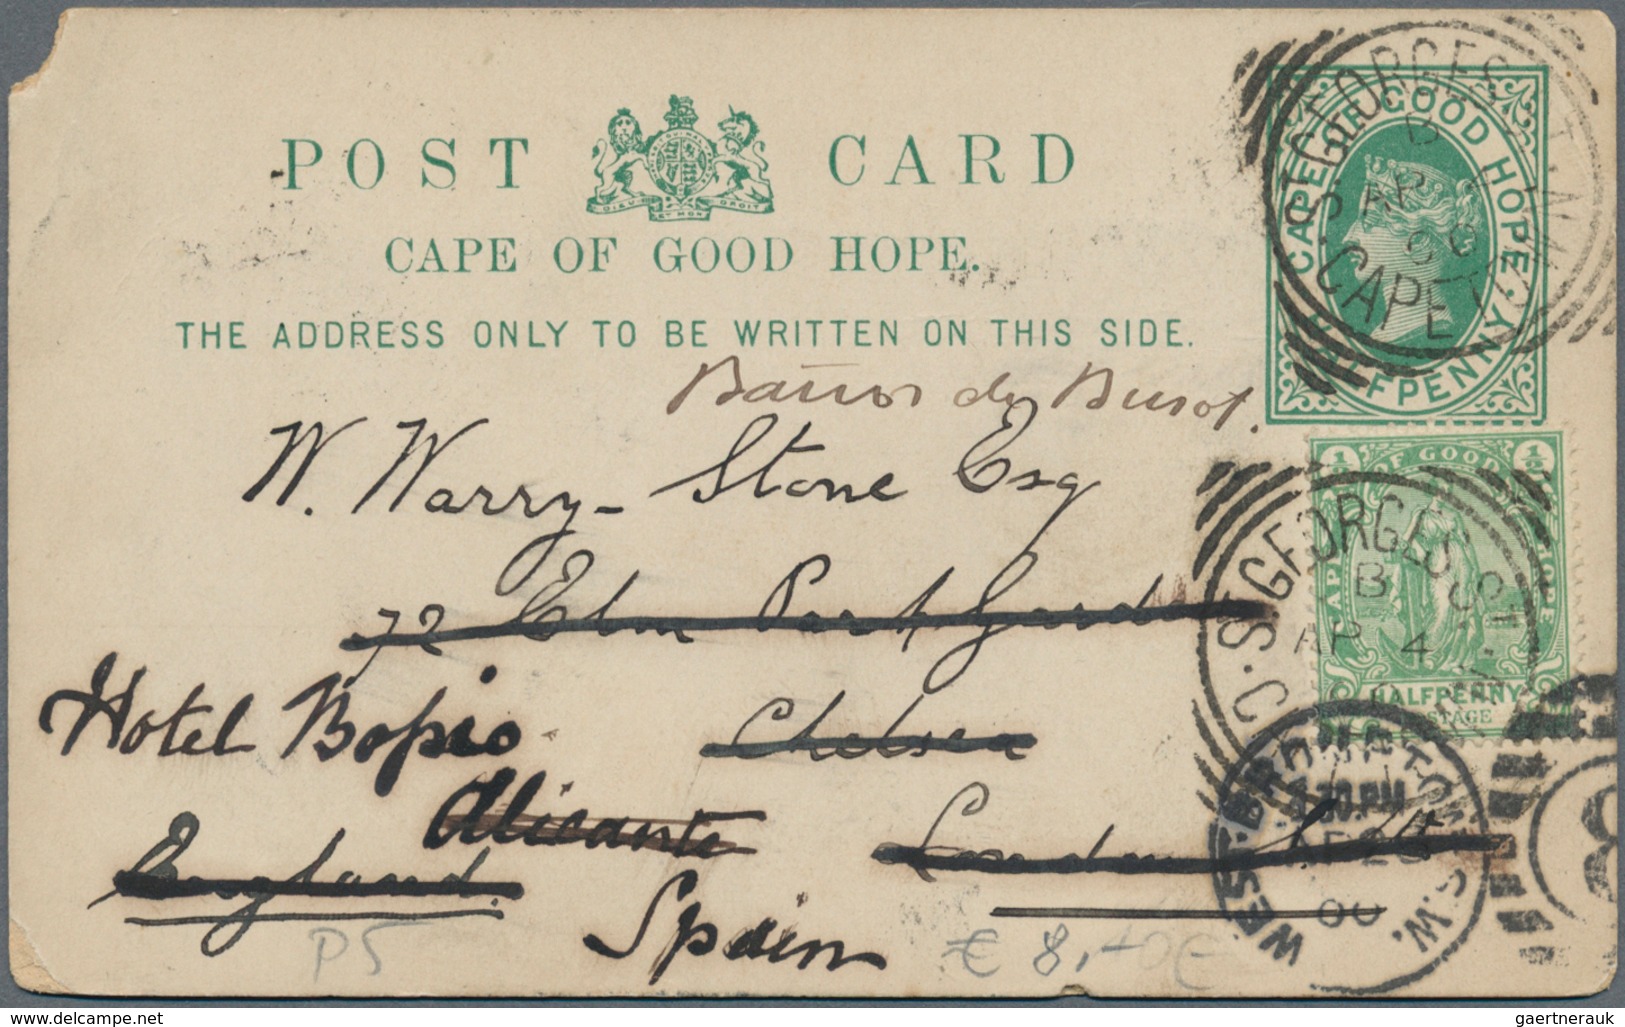 POST CARD
DIEU ET MON DROIT
CAPE OF GOOD HOPE.
THE ADDRESS ONLY TO BE WRITTEN ON THIS SIDE.
CAPE OF GOOD HOPE
HALFPENNY
ST GEORGES ST
B
AP
00
CAPE
Baños de Busot.
W. Warry-Stone Esq
72 Elm Park Gardens
Chelsea
London S.W.
England.
Hotel Bopio
Alicante
Spain
1/2 OF GOOD 1/2
CAPE
HOPE
HALFPENNY
POSTAGE
ST. GEORGES ST
B
AP 4
WEST BROMPTON S.W.
30.PM
AP 26
00
8
P5
€ 8,-
gaertnerauk
www.delcampe.net